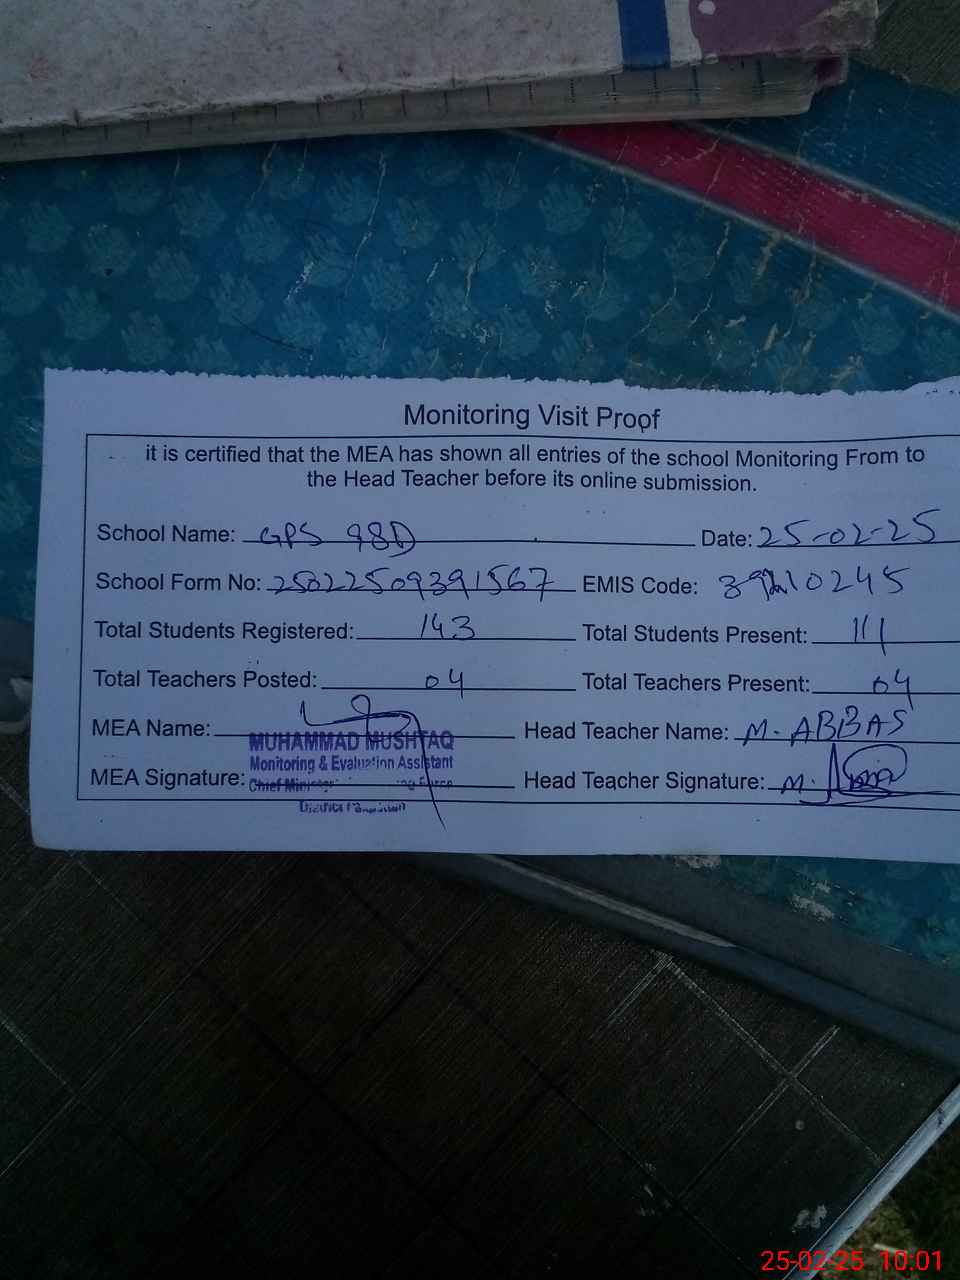 Monitoring Visit Proof
it is certified that the MEA has shown all entries of the school Monitoring From to
the Head Teacher before its online submission.
School Name: GPS 98D Date: 25-02-25
School Form No: 25022509391567 EMIS Code: 39210245
Total Students Registered: 143 Total Students Present: 111
Total Teachers Posted: 04 Total Teachers Present: 04
MEA Name: Head Teacher Name: M. ABBAS
MUHAMMAD MUSHTAQ
Monitoring & Evaluation Assistant
MEA Signature: Chief Minister Force Head Teacher Signature: M.
District
25-02-25 10:01